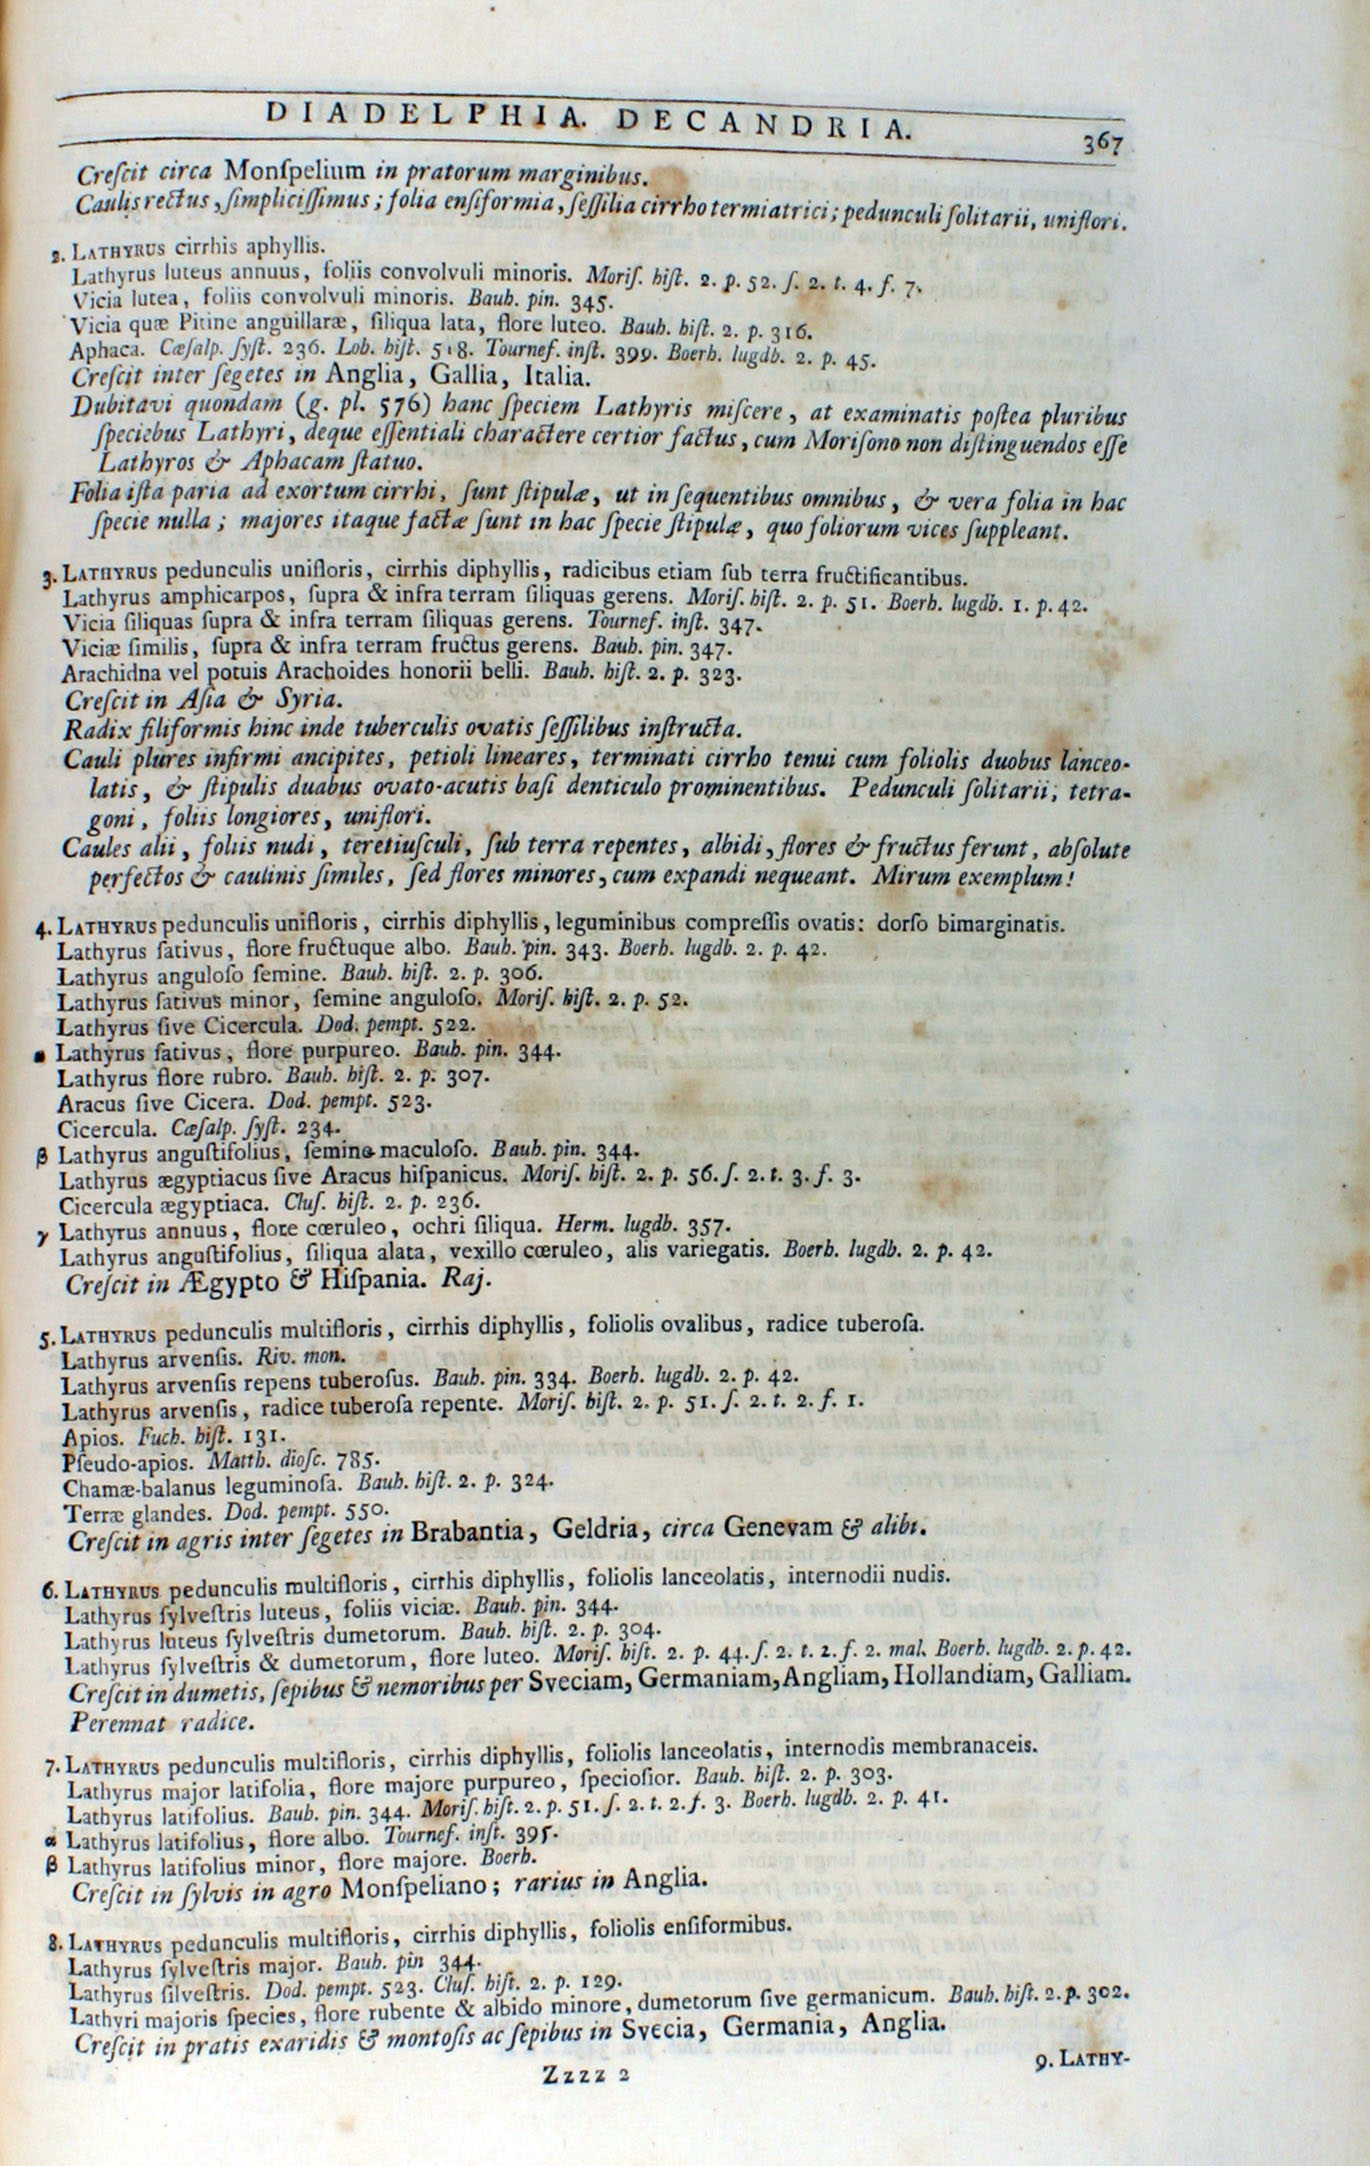 DIADELPHIA. DECANDRIA. 367
Creſcit circa Monſpelium in pratorum marginibus.
Caulis rectus, ſimpliciſſimus; folia enſiformia, ſeſſilia cirrho termiatrici; pedunculi ſolitarii, uniflori.
2. LATHYRUS cirrhis aphyllis.
Lathyrus luteus annuus, foliis convolvuli minoris. Moriſ. hiſt. 2. p. 52. ſ. 2. t. 4. f. 7.
Vicia lutea, foliis convolvuli minoris. Bauh. pin. 345.
Vicia quæ Pitine anguillaræ, ſiliqua lata, flore luteo. Bauh. hiſt. 2. p. 316.
Aphaca. Cæſalp. ſyſt. 236. Lob. hiſt. 518. Tournef. inſt. 399. Boerh. lugdb. 2. p. 45.
Creſcit inter ſegetes in Anglia, Gallia, Italia.
Dubitavi quondam (g. pl. 576) hanc ſpeciem Lathyris miſcere, at examinatis poſtea pluribus
ſpeciebus Lathyri, deque eſſentiali charactere certior factus, cum Moriſono non diſtinguendos eſſe
Lathyros & Aphacam ſtatuo.
Folia iſta paria ad exortum cirrhi, ſunt ſtipulæ, ut in ſequentibus omnibus, & vera folia in hac
ſpecie nulla; majores itaque factæ ſunt in hac ſpecie ſtipulæ, quo foliorum vices ſuppleant.
3. LATHYRUS pedunculis unifloris, cirrhis diphyllis, radicibus etiam ſub terra fructificantibus.
Lathyrus amphicarpos, ſupra & infra terram ſiliquas gerens. Moriſ. hiſt. 2. p. 51. Boerh. lugdb. 1. p. 42.
Vicia ſiliquas ſupra & infra terram ſiliquas gerens. Tournef. inſt. 347.
Viciæ ſimilis, ſupra & infra terram fructus gerens. Bauh. pin. 347.
Arachidna vel potuis Arachoides honorii belli. Bauh. hiſt. 2. p. 323.
Creſcit in Aſia & Syria.
Radix filiformis hinc inde tuberculis ovatis ſeſſilibus inſtructa.
Cauli plures infirmi ancipites, petioli lineares, terminati cirrho tenui cum foliolis duobus lanceo-
latis, & ſtipulis duabus ovato-acutis baſi denticulo prominentibus. Pedunculi ſolitarii, tetra-
goni, foliis longiores, uniflori.
Caules alii, foliis nudi, teretiuſculi, ſub terra repentes, albidi, flores & fructus ferunt, abſolute
perfectos & caulinis ſimiles, ſed flores minores, cum expandi nequeant. Mirum exemplum!
4. LATHYRUS pedunculis unifloris, cirrhis diphyllis, leguminibus compreſſis ovatis: dorſo bimarginatis.
Lathyrus ſativus, flore fructuque albo. Bauh. pin. 343. Boerh. lugdb. 2. p. 42.
Lathyrus anguloſo ſemine. Bauh. hiſt. 2. p. 306.
Lathyrus ſativus minor, ſemine anguloſo. Moriſ. hiſt. 2. p. 52.
Lathyrus ſive Cicercula. Dod. pempt. 522.
α Lathyrus ſativus, flore purpureo. Bauh. pin. 344.
Lathyrus flore rubro. Bauh. hiſt. 2. p. 307.
Aracus ſive Cicera. Dod. pempt. 523.
Cicercula. Cæſalp. ſyſt. 234.
β Lathyrus anguſtifolius, ſemine maculoſo. Bauh. pin. 344.
Lathyrus ægyptiacus ſive Aracus hiſpanicus. Moriſ. hiſt. 2. p. 56. ſ. 2. t. 3. f. 3.
Cicercula ægyptiaca. Cluſ. hiſt. 2. p. 236.
γ Lathyrus annuus, flore cœruleo, ochri ſiliqua. Herm. lugdb. 357.
Lathyrus anguſtifolius, ſiliqua alata, vexillo cœruleo, alis variegatis. Boerh. lugdb. 2. p. 42.
Creſcit in Ægypto & Hiſpania. Raj.
5. LATHYRUS pedunculis multifloris, cirrhis diphyllis, foliolis ovalibus, radice tuberoſa.
Lathyrus arvenſis. Riv. mon.
Lathyrus arvenſis repens tuberoſus. Bauh. pin. 334. Boerh. lugdb. 2. p. 42.
Lathyrus arvenſis, radice tuberoſa repente. Moriſ. hiſt. 2. p. 51. ſ. 2. t. 2. f. 1.
Apios. Fuch. hiſt. 131.
Pſeudo-apios. Matth. dioſc. 785.
Chamæ-balanus leguminoſa. Bauh. hiſt. 2. p. 324.
Terræ glandes. Dod. pempt. 550.
Creſcit in agris inter ſegetes in Brabantia, Geldria, circa Genevam & alibi.
6. LATHYRUS pedunculis multifloris, cirrhis diphyllis, foliolis lanceolatis, internodii nudis.
Lathyrus ſylveſtris luteus, foliis viciæ. Bauh. pin. 344.
Lathyrus luteus ſylveſtris dumetorum. Bauh. hiſt. 2. p. 304.
Lathyrus ſylveſtris & dumetorum, flore luteo. Moriſ. hiſt. 2. p. 44. ſ. 2. t. 2. f. 2. mal. Boerh. lugdb. 2. p. 42.
Creſcit in dumetis, ſepibus & nemoribus per Sveciam, Germaniam, Angliam, Hollandiam, Galliam.
Perennat radice.
7. LATHYRUS pedunculis multifloris, cirrhis diphyllis, foliolis lanceolatis, internodis membranaceis.
Lathyrus major latifolia, flore majore purpureo, ſpecioſior. Bauh. hiſt. 2. p. 303.
Lathyrus latifolius. Bauh. pin. 344. Moriſ. hiſt. 2. p. 51. ſ. 2. t. 2. f. 3. Boerh. lugdb. 2. p. 41.
α Lathyrus latifolius, flore albo. Tournef. inſt. 395.
β Lathyrus latifolius minor, flore majore. Boerh.
Creſcit in ſylvis in agro Monſpeliano; rarius in Anglia.
8. LATHYRUS pedunculis multifloris, cirrhis diphyllis, foliolis enſiformibus.
Lathyrus ſylveſtris major. Bauh. pin 344.
Lathyrus ſilveſtris. Dod. pempt. 523. Cluſ. hiſt. 2. p. 129.
Lathyri majoris ſpecies, flore rubente & albido minore, dumetorum ſive germanicum. Bauh. hiſt. 2. p. 302.
Creſcit in pratis exaridis & montoſis ac ſepibus in Svecia, Germania, Anglia.
Zzzz 2
9. LATHY-